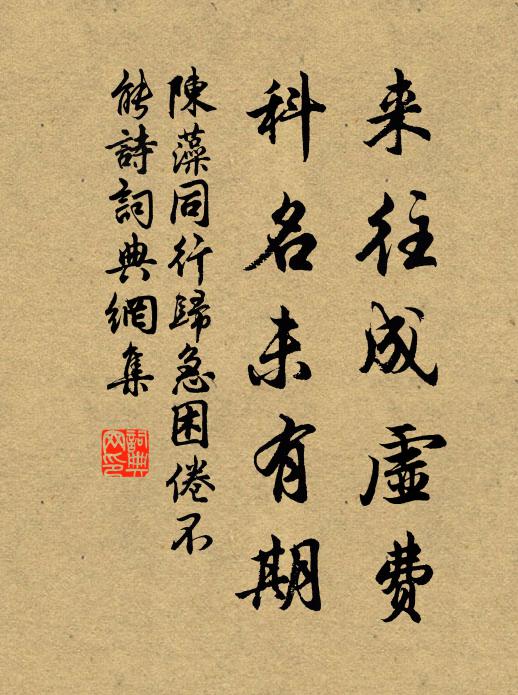 来往成虛费
科名未有期
陳藻同行歸急困倦不
能詩詞典網集
詞典
网印